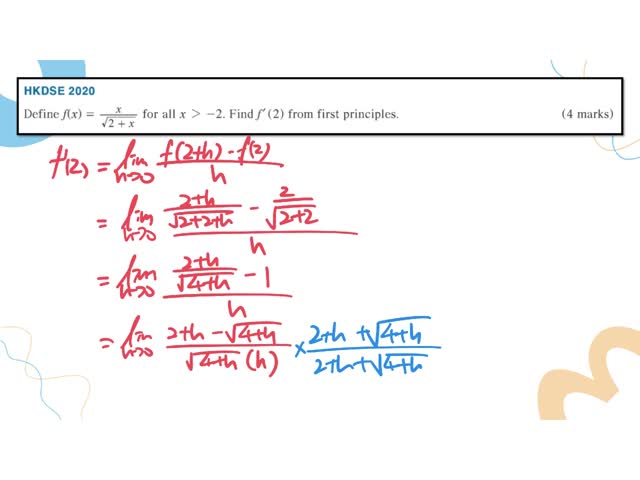 HKDSE 2020
Define f(x) = x/√(2 + x) for all x > −2. Find f′(2) from first principles. (4 marks)
f'(2) = lim h→0 (f(2+h) - f(2))/h
= lim h→0 ((2+h)/√(2+2+h) - 2/√(2+2))/h
= lim h→0 ((2+h)/√(4+h) - 1)/h
= lim h→0 (2+h - √(4+h))/(√(4+h) (h)) × (2+h + √(4+h))/(2+h + √(4+h))